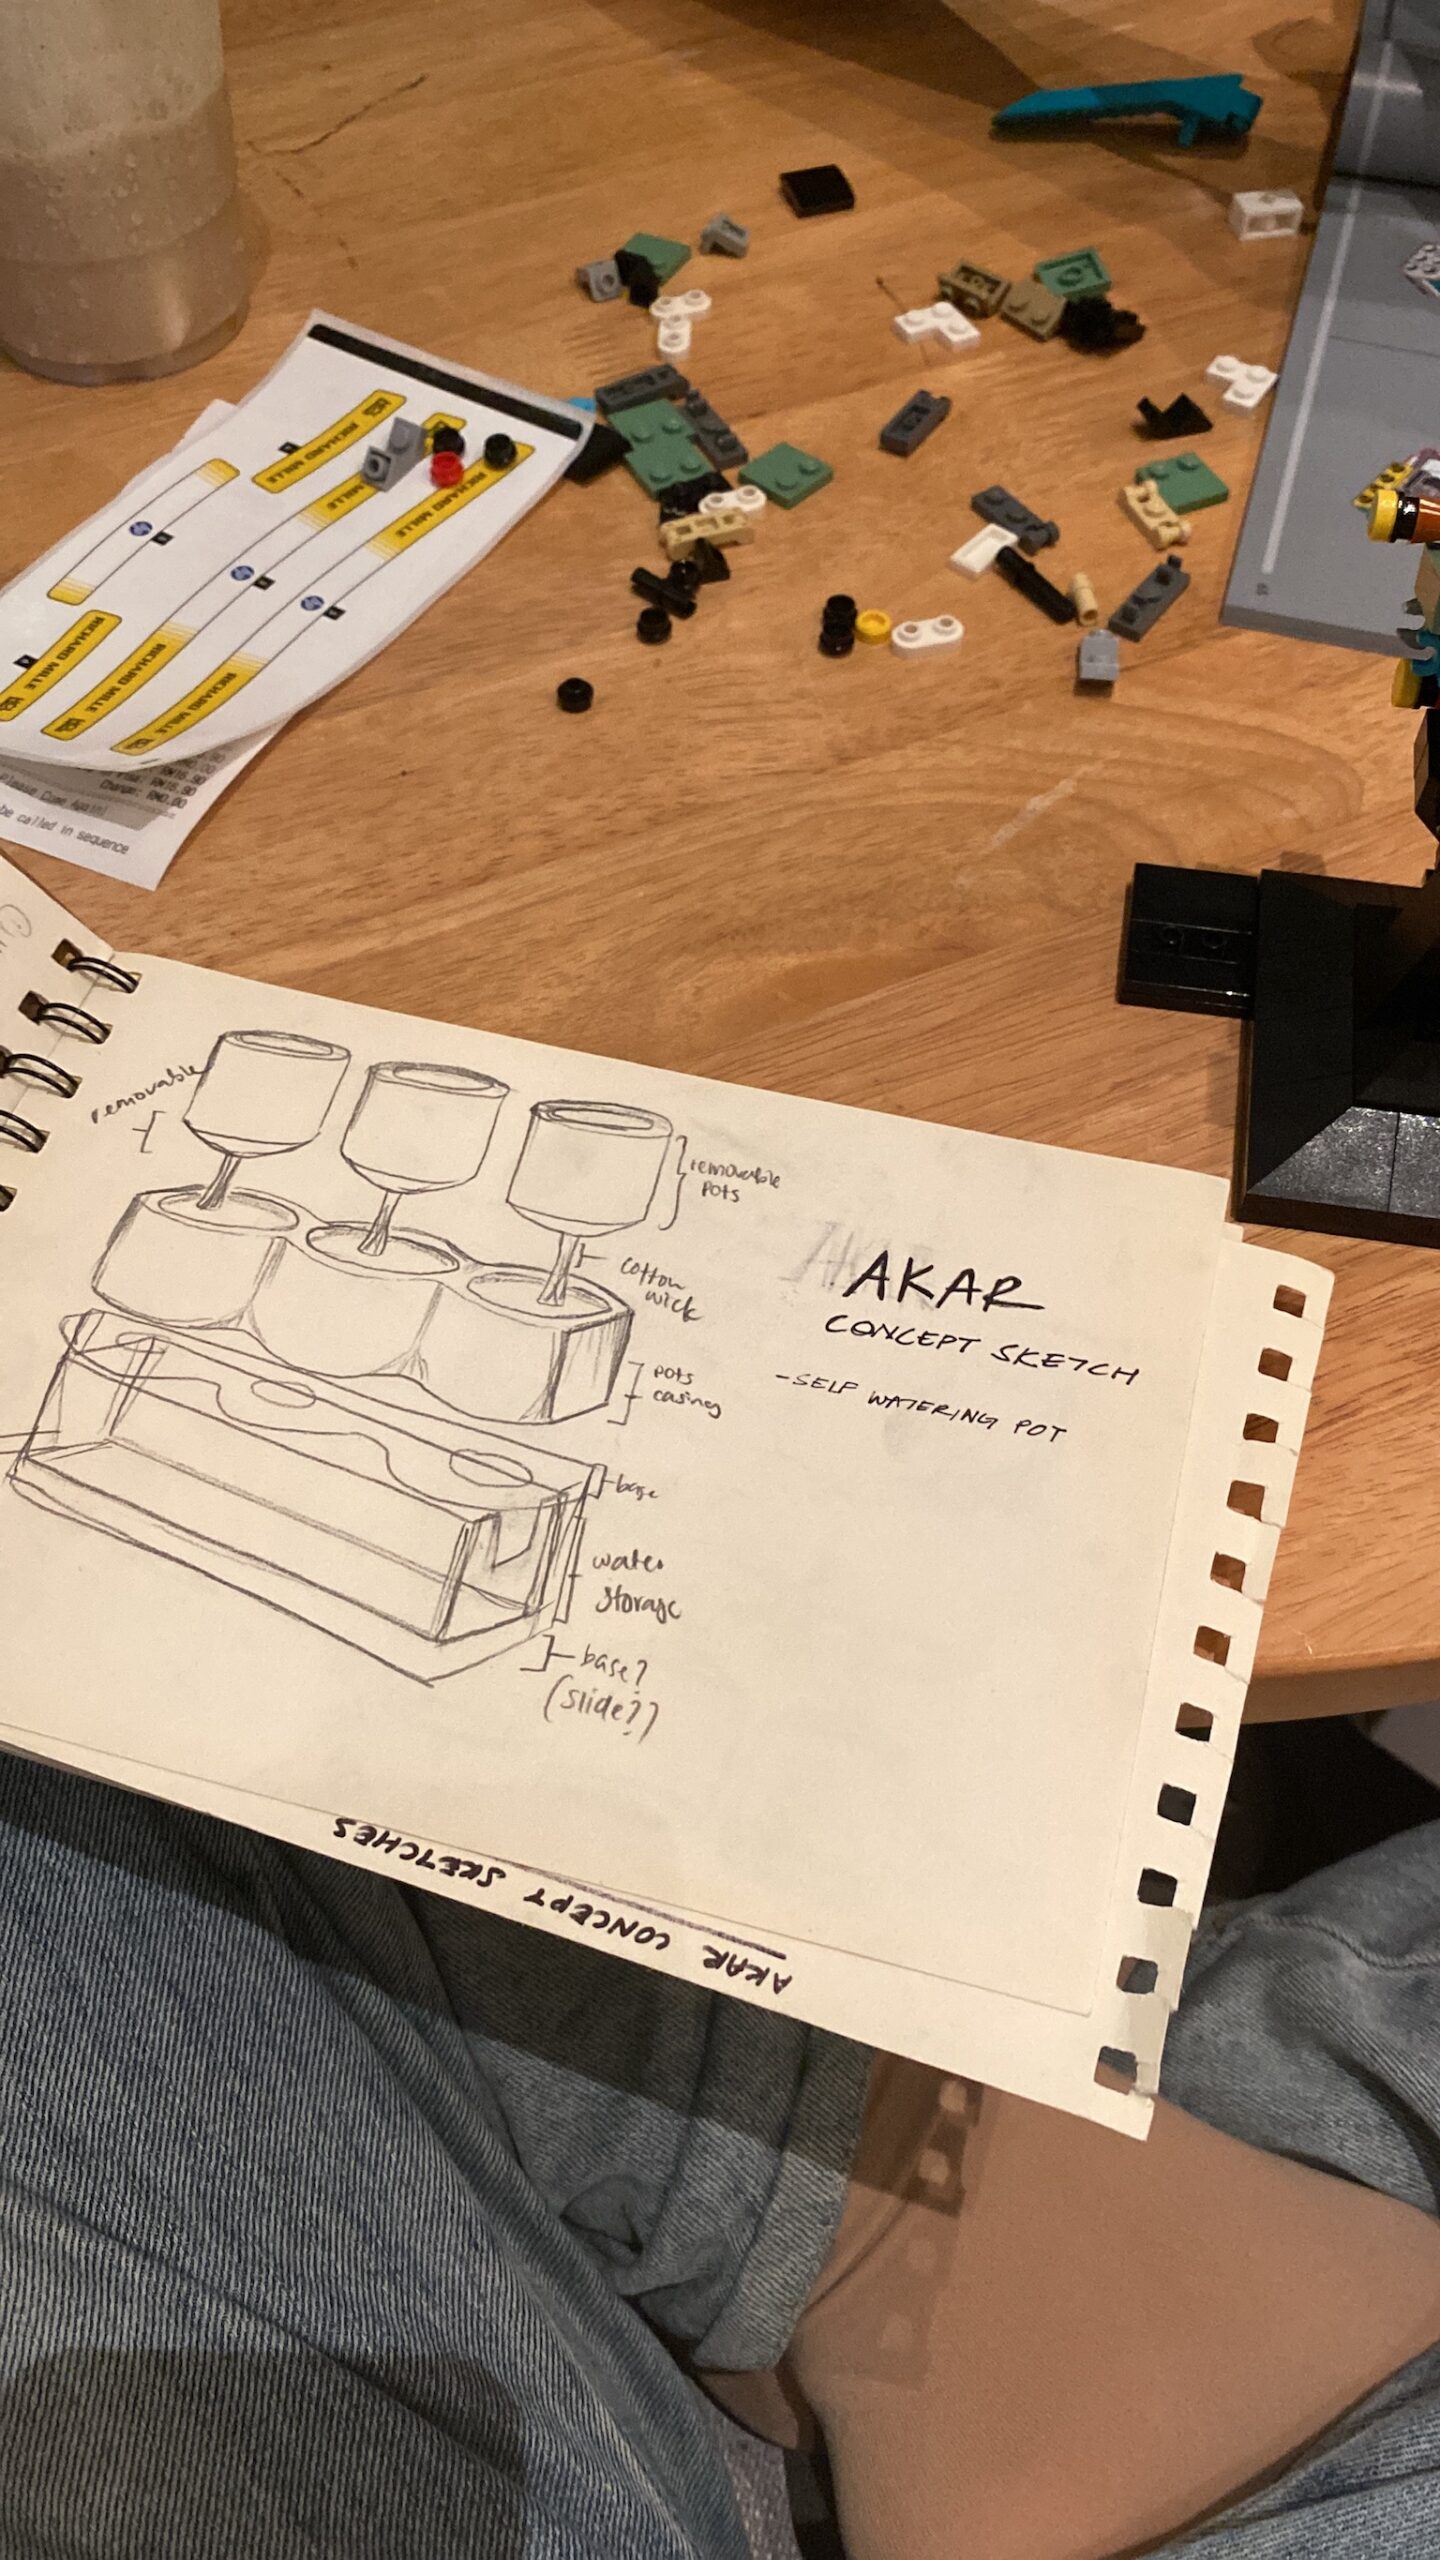 RICHARD MILLE
MILLE
RICHARD MILLE
RICHARD MILLE
RICHARD MILLE
RICHARD MILLE
Change: RM0.00
Please Come Again!
be called in sequence
removable
removable
pots
cotton
wick
pots
casing
base
water
storage
base?
(slide??)
AKAR
CONCEPT SKETCH
-SELF WATERING POT
AKAR CONCEPT SKETCHES